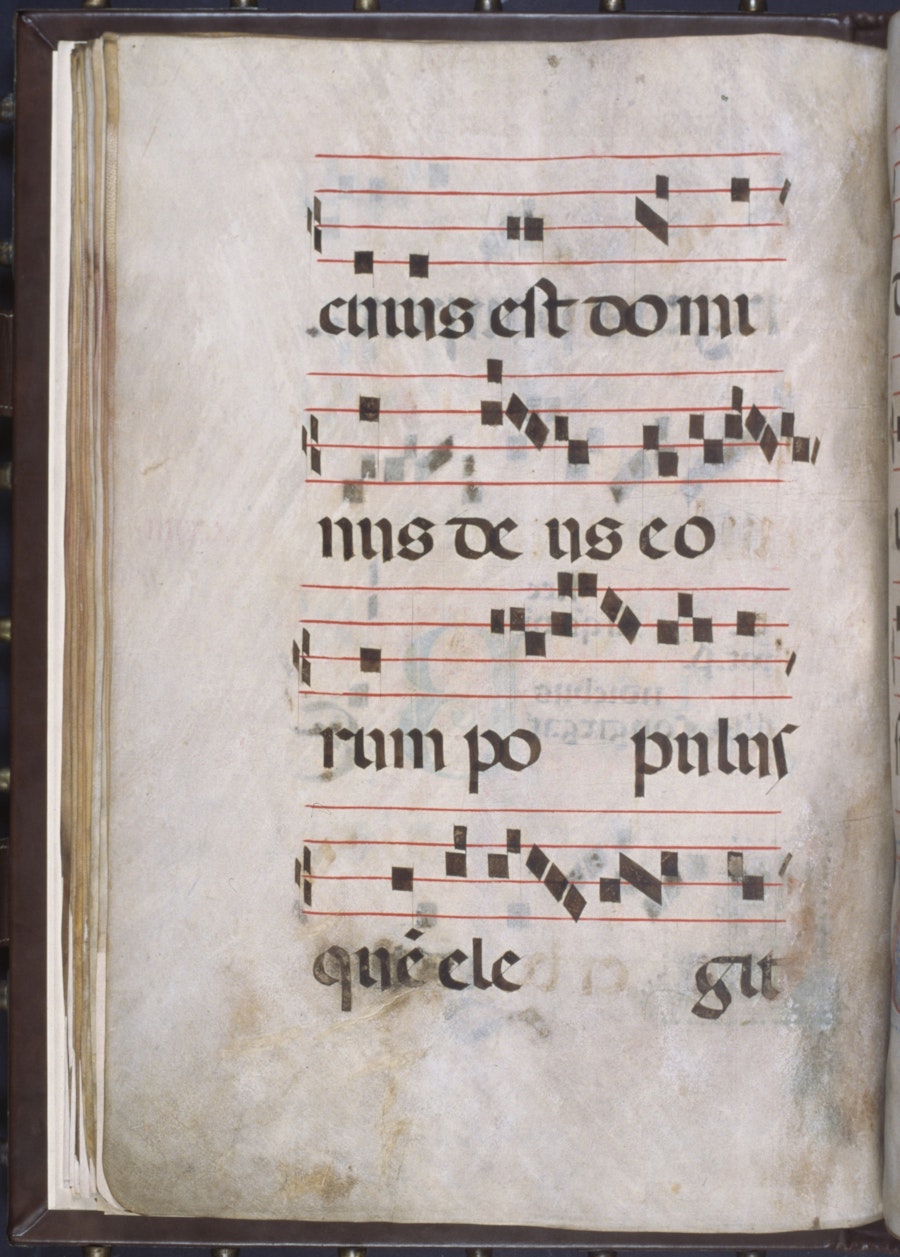 cuius est domi
nus de us eo
rum po pulus
qué ele git